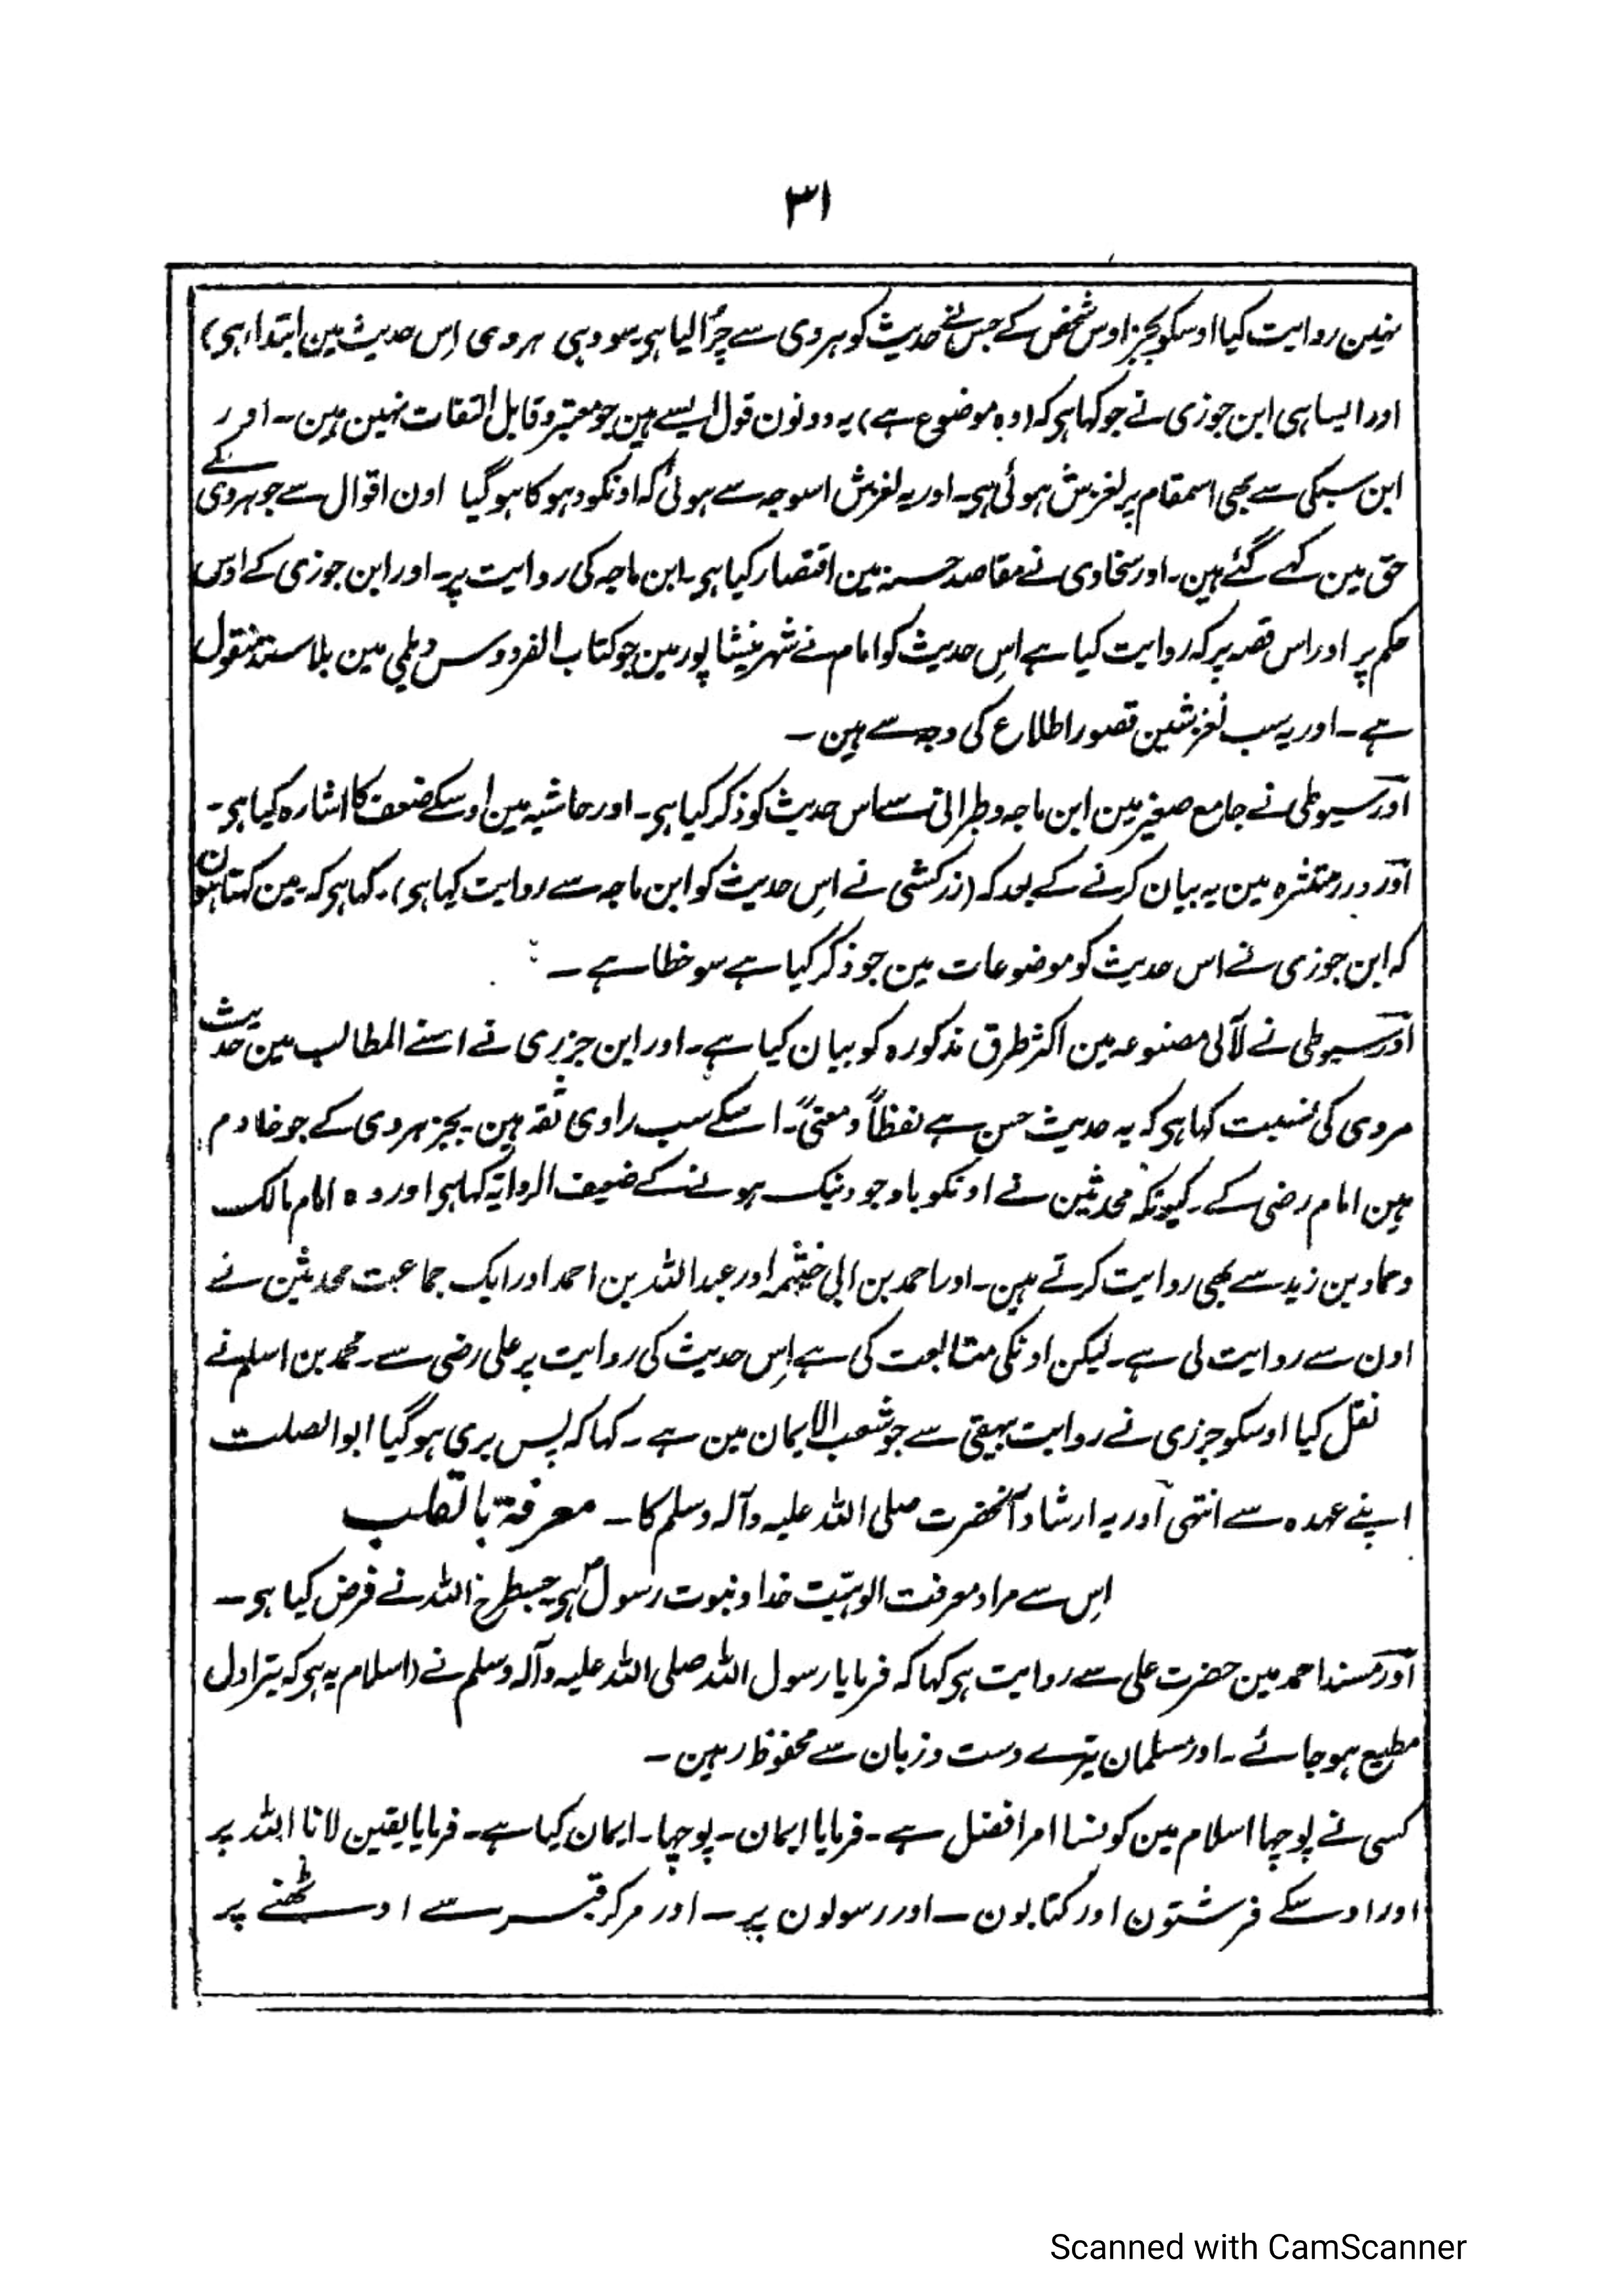 ۳۱
نہین روایت کیا اوسکو بجز اوس شخص کے جس نے حدیث کو ہروی سے چُرالیا ہی سو وہی ہروی اِس حدیث مین ابتدا ہی)
اور ایسا ہی ابن جوزی نے جو کہا ہی کہ (وہ موضوع ہے) یہ دونون قول ایسے ہین جو معتبر و قابل التفات نہین ہین۔ اور
ابن سبکی سے بھی اسمقام پر لغزش ہوئی ہی۔ اور یہ لغزش اسوجہ سے ہوئی کہ اونکو دہوکا ہوگیا اون اقوال سے جو ہروی کے
حق مین کہے گئے ہین۔ اور سخاوی نے مقاصد حسنہ مین اقتصار کیا ہی۔ ابن ماجہ کی روایت پر۔ اور ابن جوزی کے اوس
حکم پر اور اس قصہ پر کہ روایت کیا ہے اِس حدیث کو امام نے شہر نیشاپور مین جو کتاب الفردوس دیلمی مین بلا سند منقول
ہے۔ اور یہ سب لغزشین قصور اطلاع کی وجہ سے ہین۔
اور سیوطی نے جامع صغیر مین ابن ماجہ و طبرانی سے اس حدیث کو ذکر کیا ہی۔ اور حاشیہ مین اوسکے ضعف کا اشارہ کیا ہی۔
اور درر منتثرہ مین یہ بیان کرنے کے بعد کہ (زرکشی نے اِس حدیث کو ابن ماجہ سے روایت کیا ہی)۔ کہا ہی کہ۔ مین کہتا ہون
کہ ابن جوزی نے اس حدیث کو موضوعات مین جو ذکر کیا ہے سو خطا ہے۔
اور سیوطی نے لآلی مصنوعہ مین اکثر طرق مذکورہ کو بیان کیا ہے۔ اور ابن جزری نے اسنے المطالب مین حدیث
مروی کی نسبت کہا ہی کہ یہ حدیث حسن ہے لفظاً و معنیً۔ اسکے سب راوی ثقہ ہین۔ بجز ہروی کے جو خادم
ہین امام رضی کے۔ کیونکہ محدثین نے اونکو باوجود نیک ہونے کے ضعیف الروایۃ کہا ہی اور وہ امام مالک
و حماد بن زید سے بھی روایت کرتے ہین۔ اور احمد بن ابی خیثمہ اور عبد اللہ بن احمد اور ایک جماعت محدثین نے
اون سے روایت لی ہے۔ لیکن اونکی متابعت کی ہے اِس حدیث کی روایت پر علی رضی سے۔ محمد بن اسلم نے
نقل کیا اوسکو جزری نے روایت بیہقی سے جو شعب الایمان مین ہے۔ کہا کہ پس بری ہوگیا ابو الصلت
اپنے عہدہ سے انتہی اور یہ ارشاد آنحضرت صلی اللہ علیہ وآلہ وسلم کا۔ معرفۃ بالقلب
اِس سے مراد معرفت الوہیت خدا و نبوت رسولؐ ہی جسطرح اللہ نے فرض کیا ہی۔
اور مسند احمد مین حضرت علی سے روایت ہی کہا کہ فرمایا رسول اللہ صلی اللہ علیہ وآلہ وسلم نے (اسلام یہ ہی کہ تیرا دل
مطیع ہو جائے۔ اور مسلمان تیرے دست و زبان سے محفوظ رہین۔
کسی نے پوچہا اسلام مین کونسا امر افضل ہے۔ فرمایا ایمان۔ پوچہا۔ ایمان کیا ہے۔ فرمایا یقین لانا اللہ پر
اور اوسکے فرشتون اور کتابون۔ اور رسولون پر۔ اور مرکر قبر سے اوٹھنے پر
Scanned with CamScanner